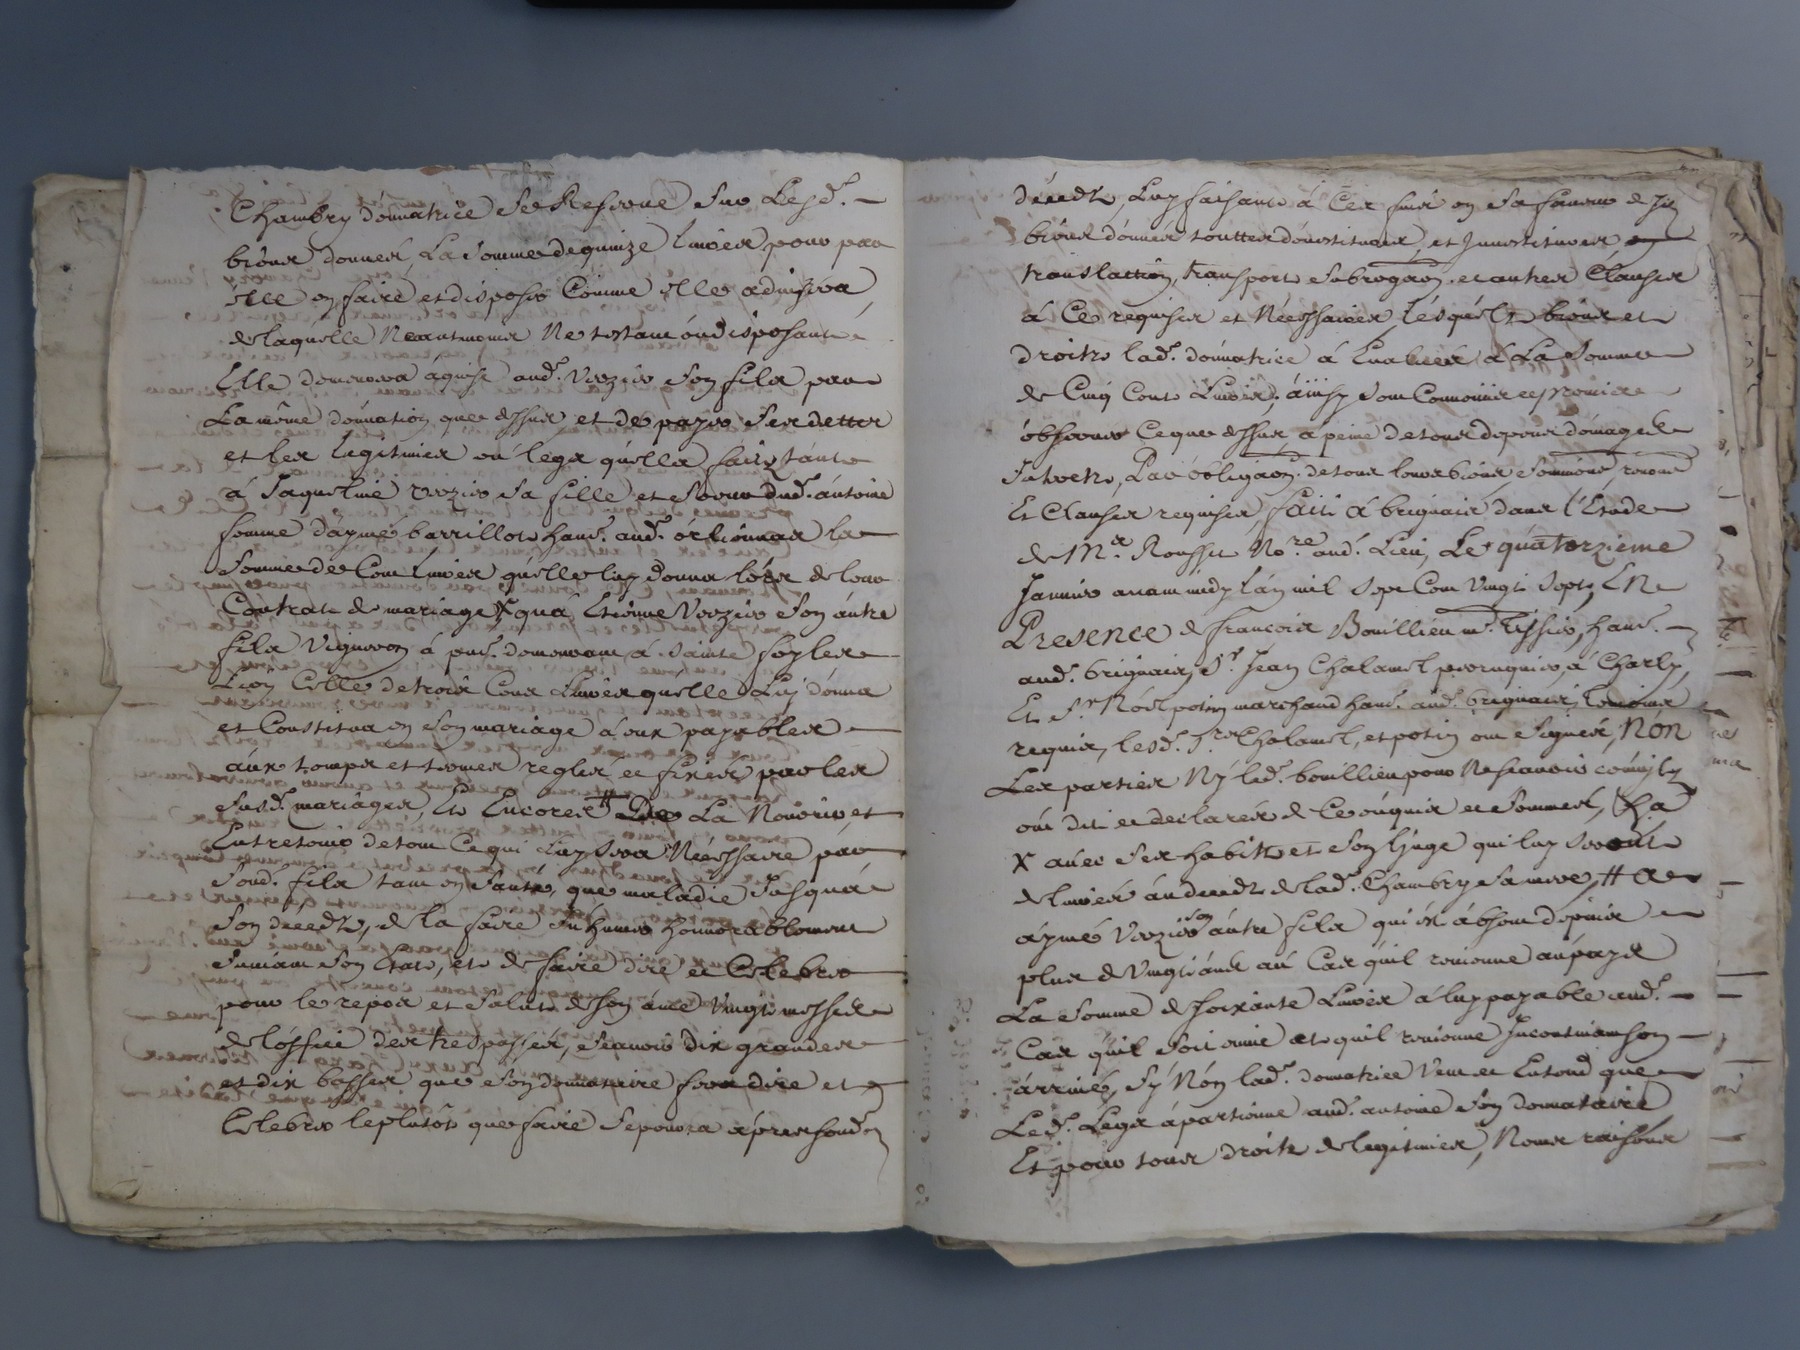 Chambry donnatrice Se Reserve Sur Lesd.
biens donnés, La Somme de quinze Livres pour par
elle en faire et disposer Comme elle advisera
de laquelle Neantmoins Ne testant ou disposant
Elle demeurera aquise aud. Verzier Son fils par
La même donnation que dessus et de payer Ses dettes
et les legitimes ou legs qu'elle a faits tant
à Jaqueline Verzier Sa fille et Soeur dud. antoine
femme d'aymé barrillot hant. aud. orlienas la
Somme de Cent Livres qu'elle luy donna lors de leur
Contrat de mariage X qu'a Etienne Verzier Son autre
fils Vigneron à pnt. demeurant a Sainte foy les
Lion Celle de trois Cens Livres quelle Luy donna
et Constitua en Son mariage à eux payables
aux temps et termes reglés et fixés par les
Susd. mariages, Et Encores # De La Nourir, et
Entretenir de tout Ce qui Luy Sera Nécessaire par
Sond. fils tant en Santé, que maladie Jusqu'à
Son deceds, de la faire Inhumer honnorablement
Suivant Son Etat, et de faire dire et Celebrer
pour le repos et Salut de Son âme Vingt messes
de l'office des trespassés, Scavoir dix grandes
et dix basses que Son donnataire fera dire et
Celebrer le plutôt que faire Se pourra apres Sond.
deceds, Luy faisant à Ces fins en Sa faveur desd.
biens donnés touttes devestitures, et Investitures
translation, transport Subrogaon. et autres Clauses
à Ce requises et Nécessaires, lesquels biens et
droits lad. donnatrice à Evalués à La Somme
de Cinq Cent Livres, ainsy Sont Convenus et promis
observer Ce que dessus à peine de tous depens domages
Interets, Par obligaon. de tous leurs biens Soumions, renons
Et Clauses requises, fait à brignais dans l'Etude
de Me. Rousset No.re aud. Lieu, Le quatorzieme
Janvier avant midy l'an mil Sept Cent Vingt Sept, EN
Presence de francois Bouillieu me. Tissier, hant.
aud. brignais, Sr. Jean Chalamel perruquier, à Charly,
Et Sr. Noël potin marchand hant. aud. brignais, temoins
requis, lesd. Srs. Chalamel, et potin ont Signés, NON
Les parties Ny led. bouillieu pour Ne Scavoir comm'ils
ont dit et declarés de Ce enquis et Sommés,
X avec Ses habits et Son linge qui luy Seront
delivrés au deceds de lad. Chambry Sa mere, # a
aymé Verzier Son autre fils qui est absent depuis
plus de Vingt ans au Cas qu'il revienne au pays
La Somme de Soixante Livres à luy payable aud.
Cas qu'il Soit envie et quil revienne Incontinant Son
arrivée, Sy Non lad. donnatrice Veut et Entend que
Led. Legs apartienne aud. antoine Son donnataire
Et pour tous droits de legitimes, Noms raisons